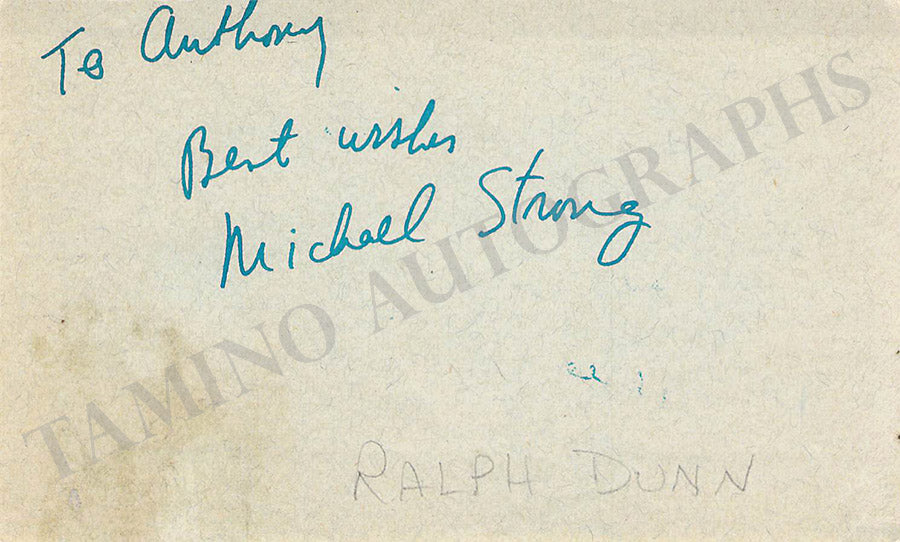 To Anthony
Best wishes
Michael Strong
TAMINO AUTOGRAPHS
RALPH DUNN